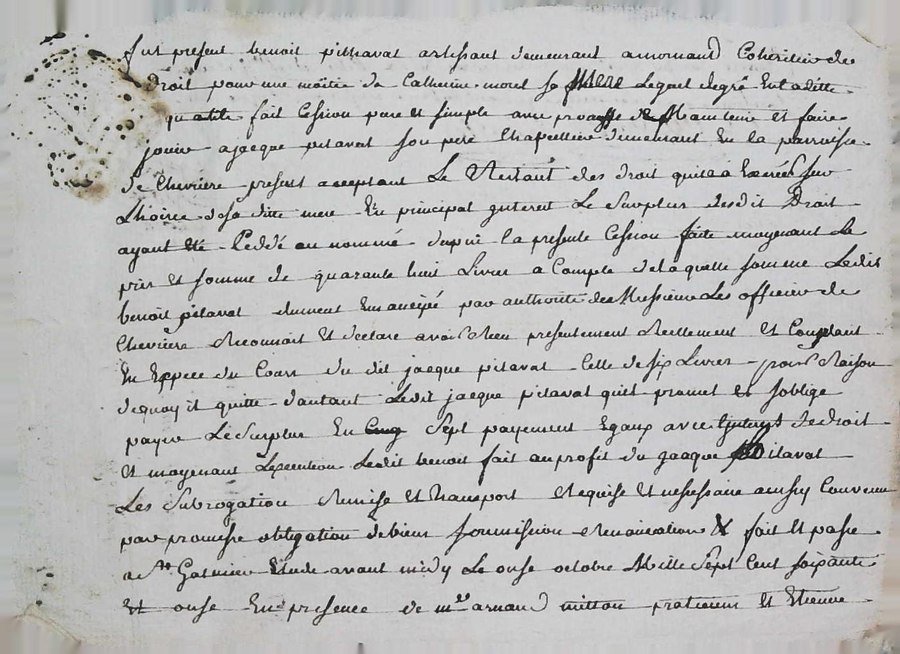 fut present benoit pithavat artissant demeurant amornand Coheritier de
droit pour une möitie de Catherine morel sa mere Lequel degré Enladitte
qualité fait Cession pure et simple avec promesse de Maintenir et faire
jouir a jacque pitavat son pere Chapellier demeurant En la parroisse
de Chevriere present acceptant Le Restant des droit quila à Exercés sur
Lhoirie desaditte mere En principal jnterest Le surplus desdit Droit
ayant été Ceddé au nommé dupui la presente Cession faite moyenant Le
prix et somme de quarante huit Livres a Compte delaquelle somme Ledit
benoit pitavat duement Emancipé par authorité de Messieurs Les officier de
Chevriere Reconnoit et declare avoir Receu presentement Reellement et Comptant
En Espece du Cours du dit jacque pitavat Celle desix Livres pour Raison
dequoy il quitte dautant Ledit jacque pitavat quil promet et soblige
payer Lesurplus En sept payement Egaux avec jnterest dedroit
et moyenant Lexecution Ledit benoit fait auproffit du jacque pitavat
Les subrogation Remise et transport Requise et nessessaire ainsy Convenu
par promesse obligation debiens soumission Renonciation & fait et passé
a St Galmier Etude avant midy Le onse octobre Mille sept Cent soixante
et onse En presence de mre arnaud mitton praticien et Etienne